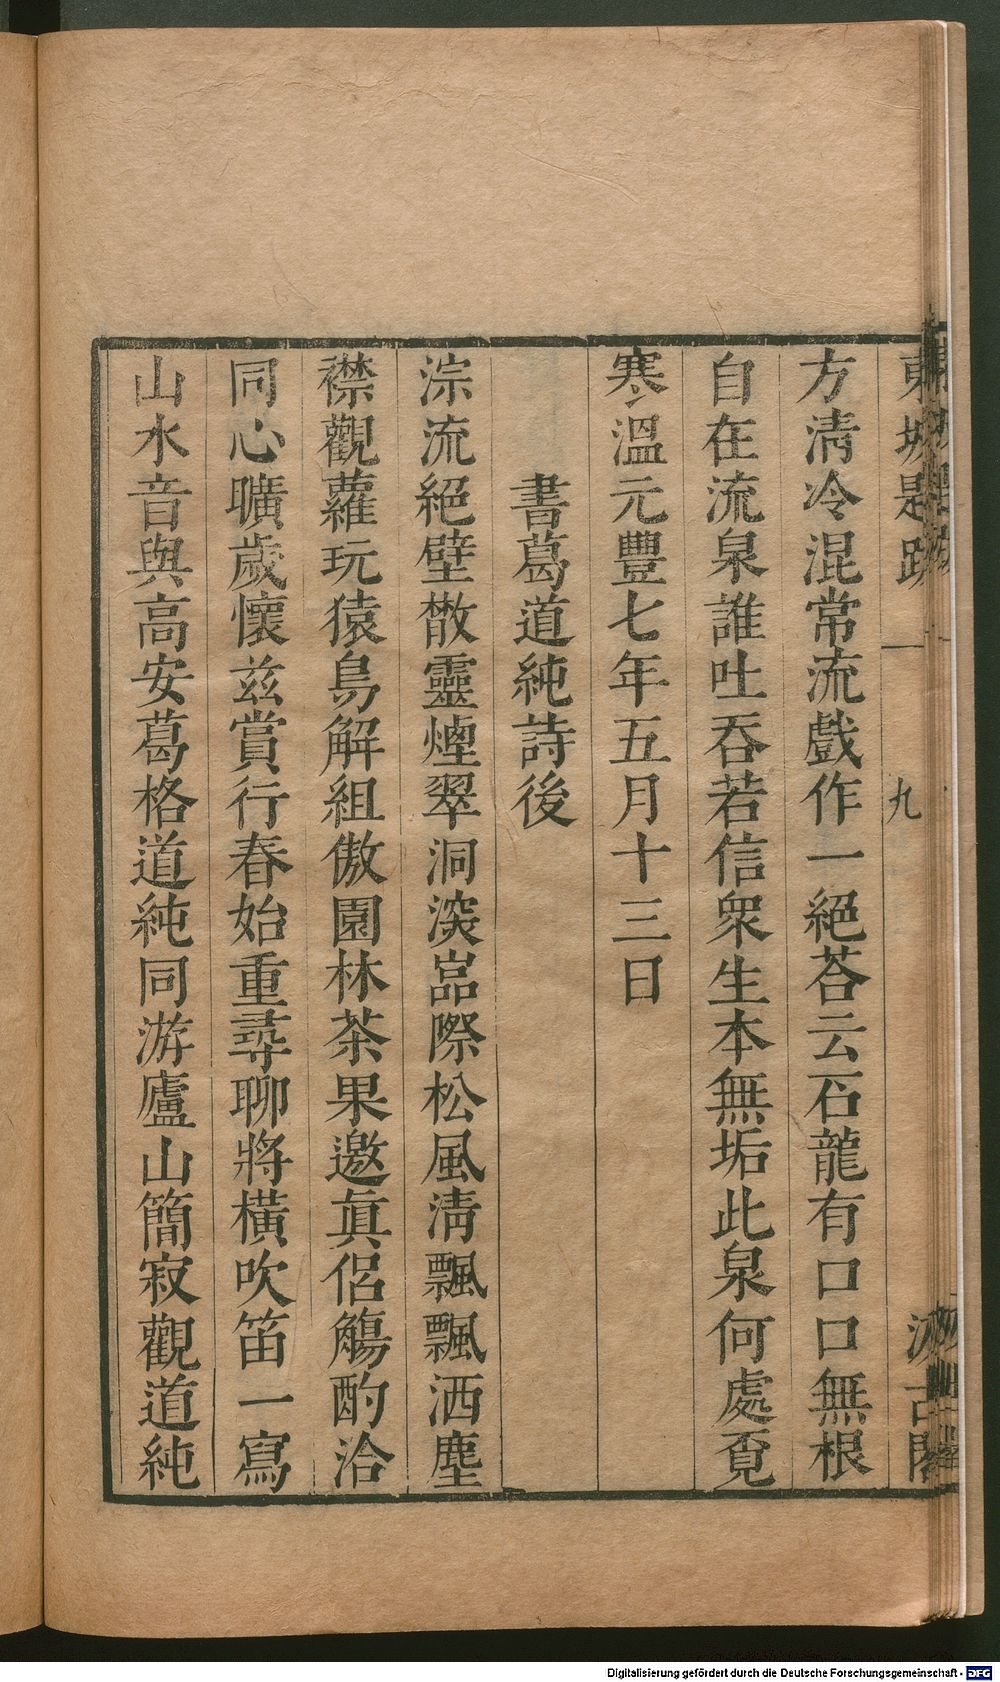 東坡題跋 一 九 汲古閣
方清冷混常流戲作一絕荅云石龍有口口無根
自在流泉誰吐吞若信衆生本無垢此泉何處覔
寒溫元豐七年五月十三日
書葛道純詩後
淙流絕壁散靈煙翠洞深嵓際松風清飄飄洒塵
襟觀蘿玩猿鳥解組傲園林茶果邀眞侶觴酌洽
同心曠歲懷茲賞行春始重尋聊將橫吹笛一寫
山水音與高安葛格道純同游廬山簡寂觀道純
Digitalisierung gefördert durch die Deutsche Forschungsgemeinschaft - DFG